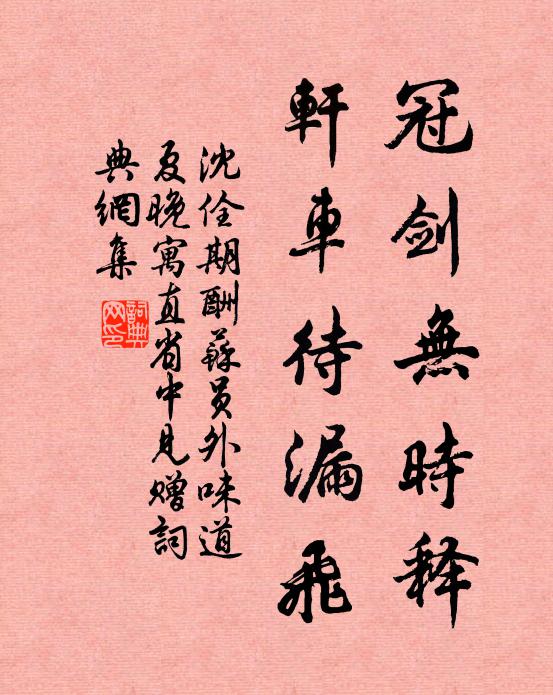 冠剑無時释
軒車待漏飛
沈佺期酬蘇员外味道
夏晚寓直省中見赠詞
典網集
詞典网印